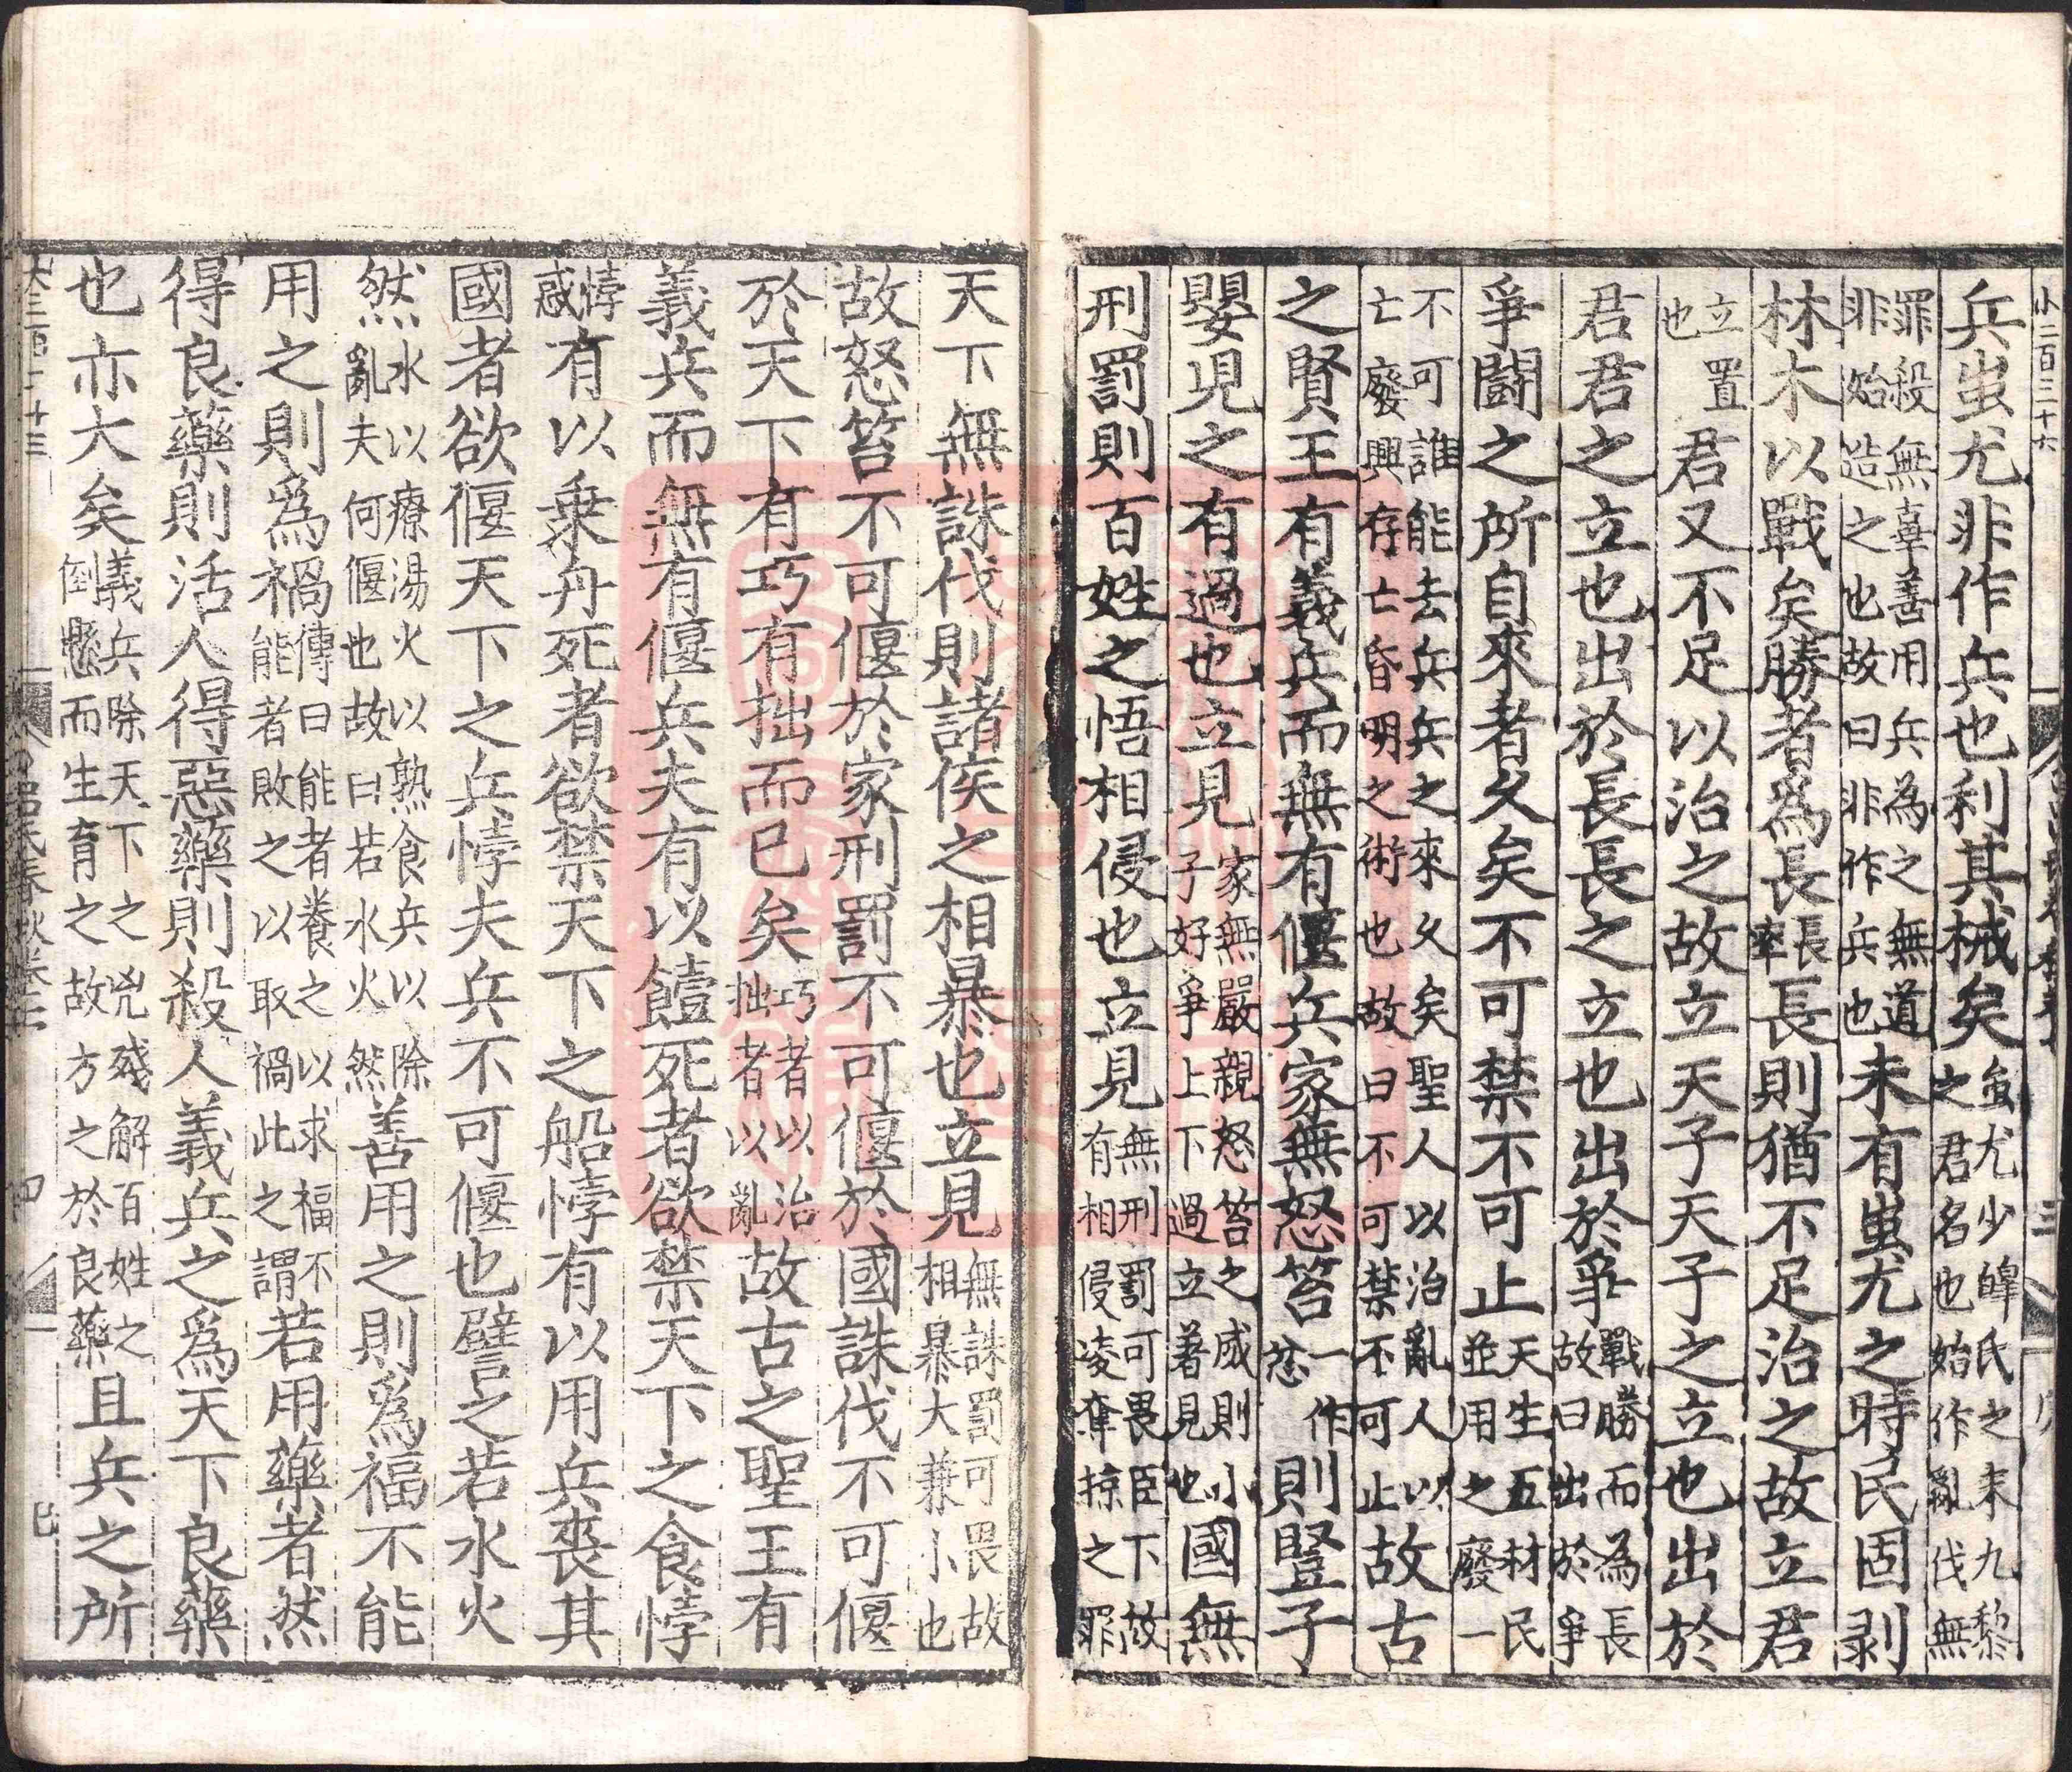 小二百三十六
兵蚩尤非作兵也利其械矣蚩尤少皥氏之末九黎之君名也始作亂伐無
罪殺無辜善用兵為之無道非始造之也故曰非作兵也未有蚩尤之時民固剥
林木以戰矣勝者為長長率長則猶不足治之故立君
立置也君又不足以治之故立天子天子之立也出於
君君之立也出於長長之立也出於爭戰勝而為長故曰出於爭
爭鬭之所自來者久矣不可禁不可止天生五材民並用之廢一
不可誰能去兵兵之來久矣聖人以治亂人以亡廢興存亡昏明之術也故曰不可禁不可止故古
之賢王有義兵而無有偃兵家無怒笞一作忿則豎子
嬰児之有過也立見家無嚴親怒笞之威則小子好爭上下過立著見也國無
刑罰則百姓之悟相侵也立見無刑罰可畏臣下故有相侵凌奪掠之罪
天下無誅伐則諸侯之相暴也立見無誅罰可畏故相暴大兼小也
故怒笞不可偃於家刑罰不可偃於國誅伐不可偃
於天下有巧有拙而已矣巧者以治拙者以亂故古之聖王有
義兵而無有偃兵夫有以饐死者欲禁天下之食悖
悖惑有以乗舟死者欲禁天下之船悖有以用兵喪其
國者欲偃天下之兵悖夫兵不可偃也譬之若水火
然水以療湯火以熟食兵以除亂夫何偃也故曰若水火然善用之則為福不能
用之則為禍傳曰能者養之以求福不能者敗之以取禍此之謂若用藥者然
得良藥則活人得惡藥則殺人義兵之為天下良藥
也亦大矣義兵除天下之兇殘解百姓之倒懸而生育之故方之於良藥且兵之所
大三百二十三
呂氏春秋卷七
四